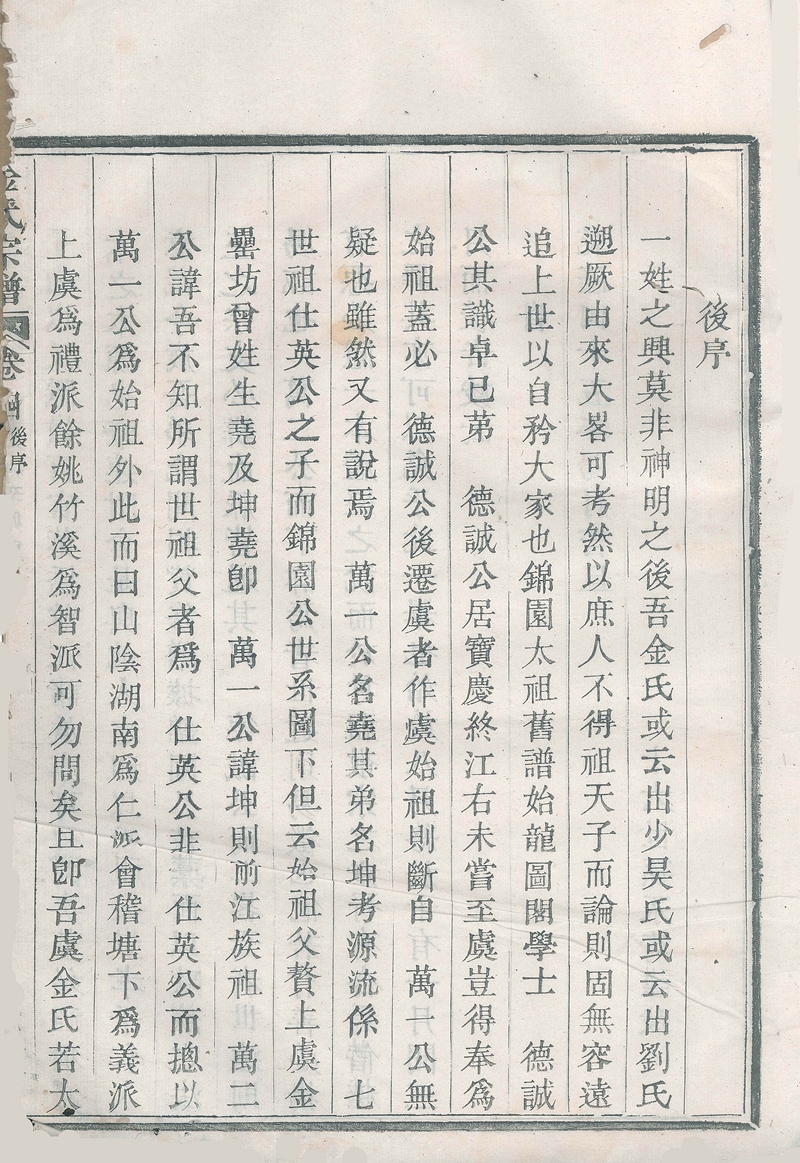 後序
一姓之興莫非神明之後吾金氏或云出少昊氏或云出劉氏
遡厥由來大畧可考然以庶人不得祖天子而論則固無容遠
追上世以自矜大家也錦園太祖舊譜始龍圖閣學士　德誠
公其識卓已苐　德誠公居寶慶終江右未嘗至虞豈得奉爲
始祖蓋必　德誠公後遷虞者作虞始祖則斷自　萬一公無
疑也雖然又有說焉　萬一公名堯其弟名坤考源流係　七
世祖仕英公之子而錦園公世系圖下但云始祖父贅上虞金
罍坊曾姓生堯及坤堯卽　萬一公諱坤則前江族祖　萬二
公諱吾不知所謂世祖父者爲　仕英公非　仕英公而摠以
萬一公爲始祖外此而曰山陰湖南爲仁派會稽塘下爲義派
上虞爲禮派餘姚竹溪爲智派可勿問矣且卽吾虞金氏若太
金氏宗譜
卷
後序